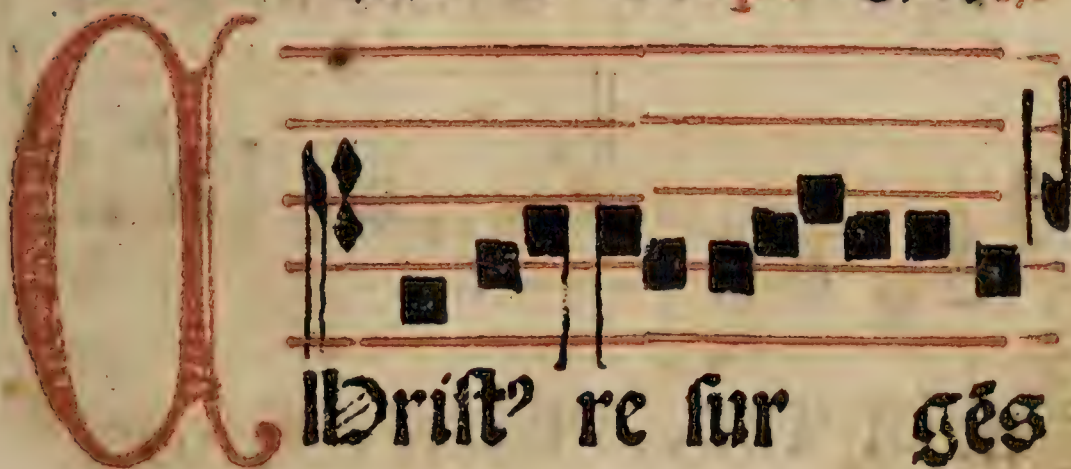 CHriſtꝰ re ſur gēs